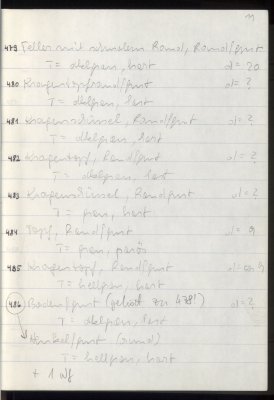 11
479 Teller mit schmalem Rand, Randfrmt
T = hellgrau, hart d = 20
480 Kragentopfrandfrmt d = ?
T = hellgrau, hart
481 Kragenschüssel, Randfrmt d = ?
T = hellgrau, hart
482 Kragentopf, Randfrmt d = ?
T = hellgrau, hart
483 Kragenschüssel, Randfrmt d = ?
T = grau, hart
484 Topf, Randfrmt d = 9
T = grau, porös
485 Kragentopf, Randfrmt
T = hellgrau, hart
486 Bodenfrmt (gehört zu 478!) d = ?
T = hellgrau, hart
Henkelfrmt (rund)
T = hellgrau, hart
+ 1 Wf